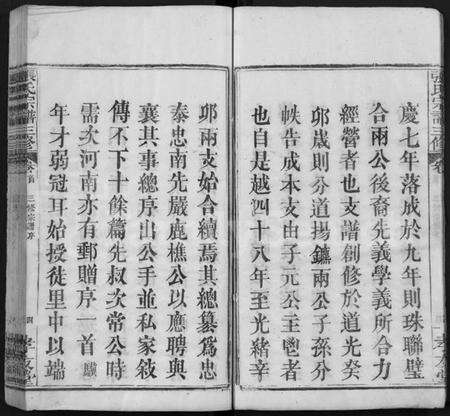 張氏宗譜三修
慶七年落成於九年則珠聯璧
合兩公後裔先義學義所合力
經營者也支譜創修於道光癸
卯歲則分道揚鑣兩公子孫分
帙告成本支由子元公主鬯者
也自是越四十八年至光緒辛
卯兩支始合續焉其總纂爲忠
泰忠南先嚴鹿樵公以應聘與
襄其事總序出公手並私家敘
傳不下十餘篇先叔次常公時
需次河南亦有郵贈序一首驥
年才弱冠耳始授徒里中以端
張氏宗譜三修 卷首 三修宗譜序 四